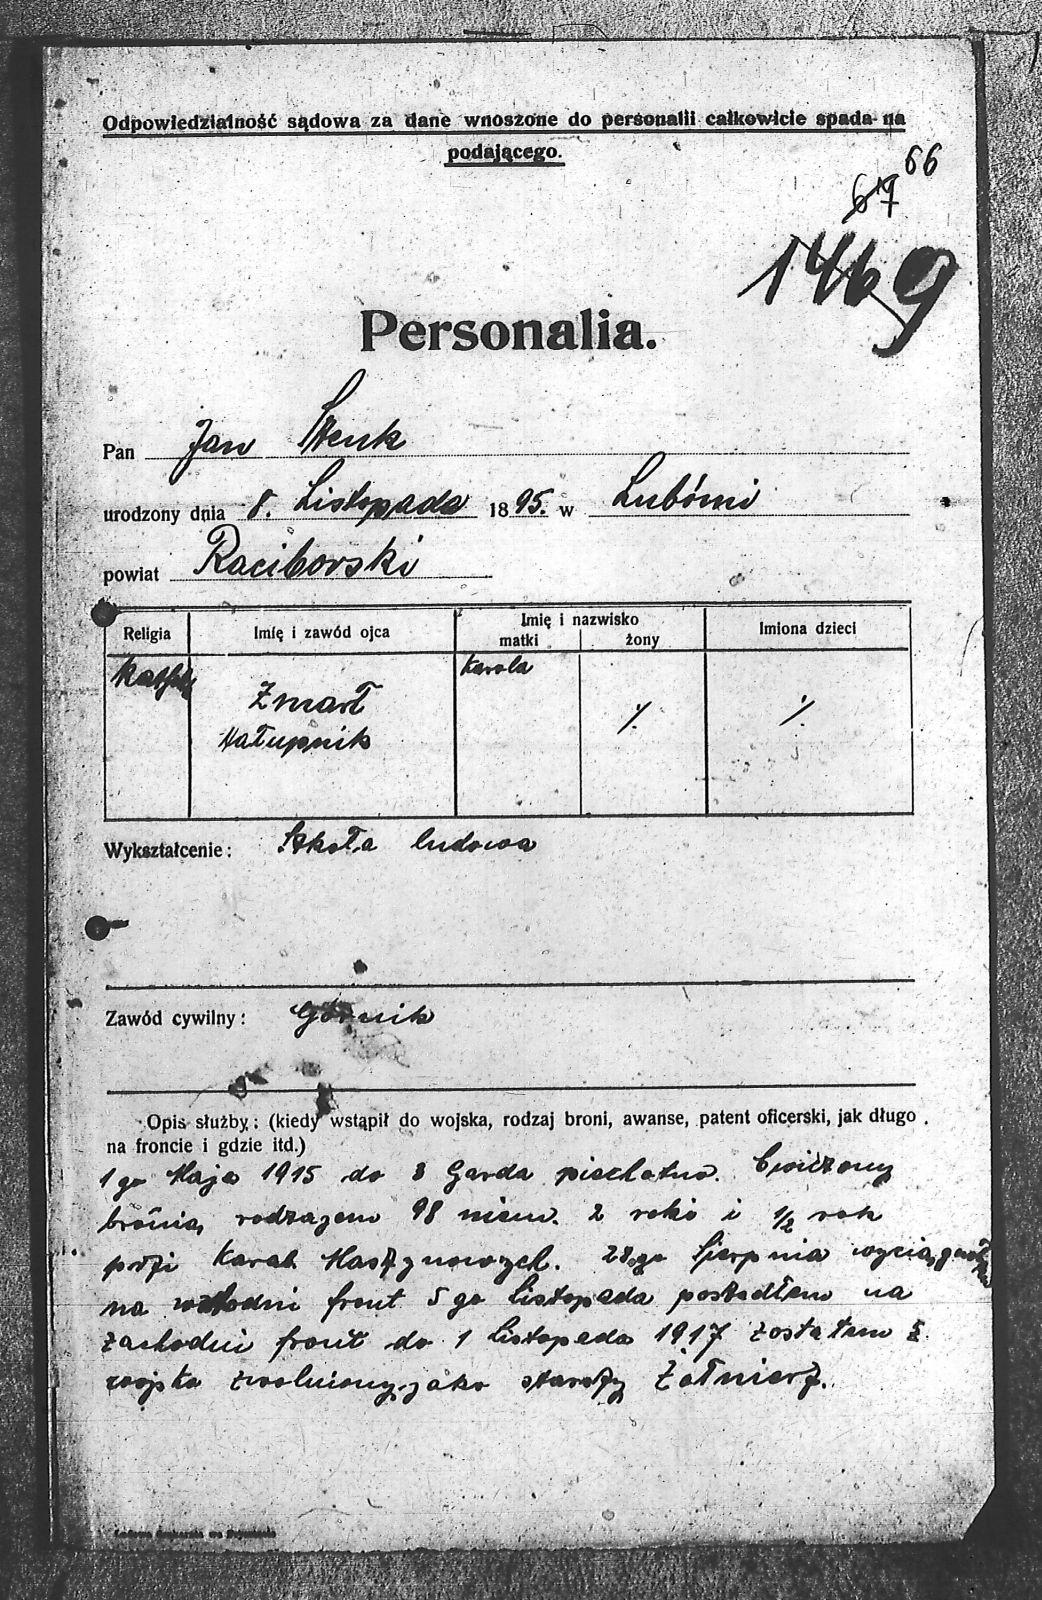 Odpowiedzialność sądowa za dane wnoszone do personalii całkowicie spada na
podającego.
66
67
1469
Personalia.
Pan Jan
urodzony dnia 8. Listopada 1895. w Lubómi
powiat Raciborski
Religia Imię i zawód ojca Imię i nazwisko Imiona dzieci
matki żony
Karola
Zmarł
Hałupnik
Wykształcenie: Szkoła ludowa
Zawód cywilny: Górnik
Opis służby: (kiedy wstąpił do wojska, rodzaj broni, awanse, patent oficerski, jak długo
na froncie i gdzie itd.)
1 go Maja 1915 do 3 Garda piechotno. Cwiczony
bronią rodzajem 98 niem. 2 roki i 1/2 rok
przi Karab. Maszynowych. 28.go Sierpnia
na wschodni front 5 go Listopada poszedłem na
zachodni front do 1 Listopada 1917 zostałem z
wojska zwolniony jako starszy Żołnierz.